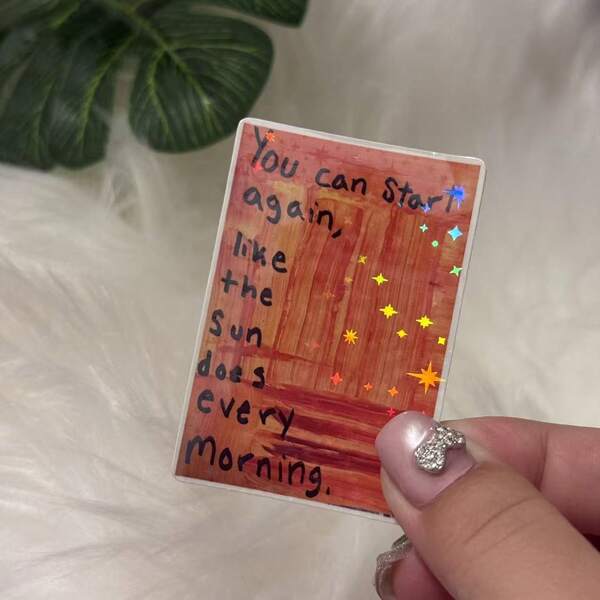 You can Start
again,
like
the
Sun
does
every
morning.